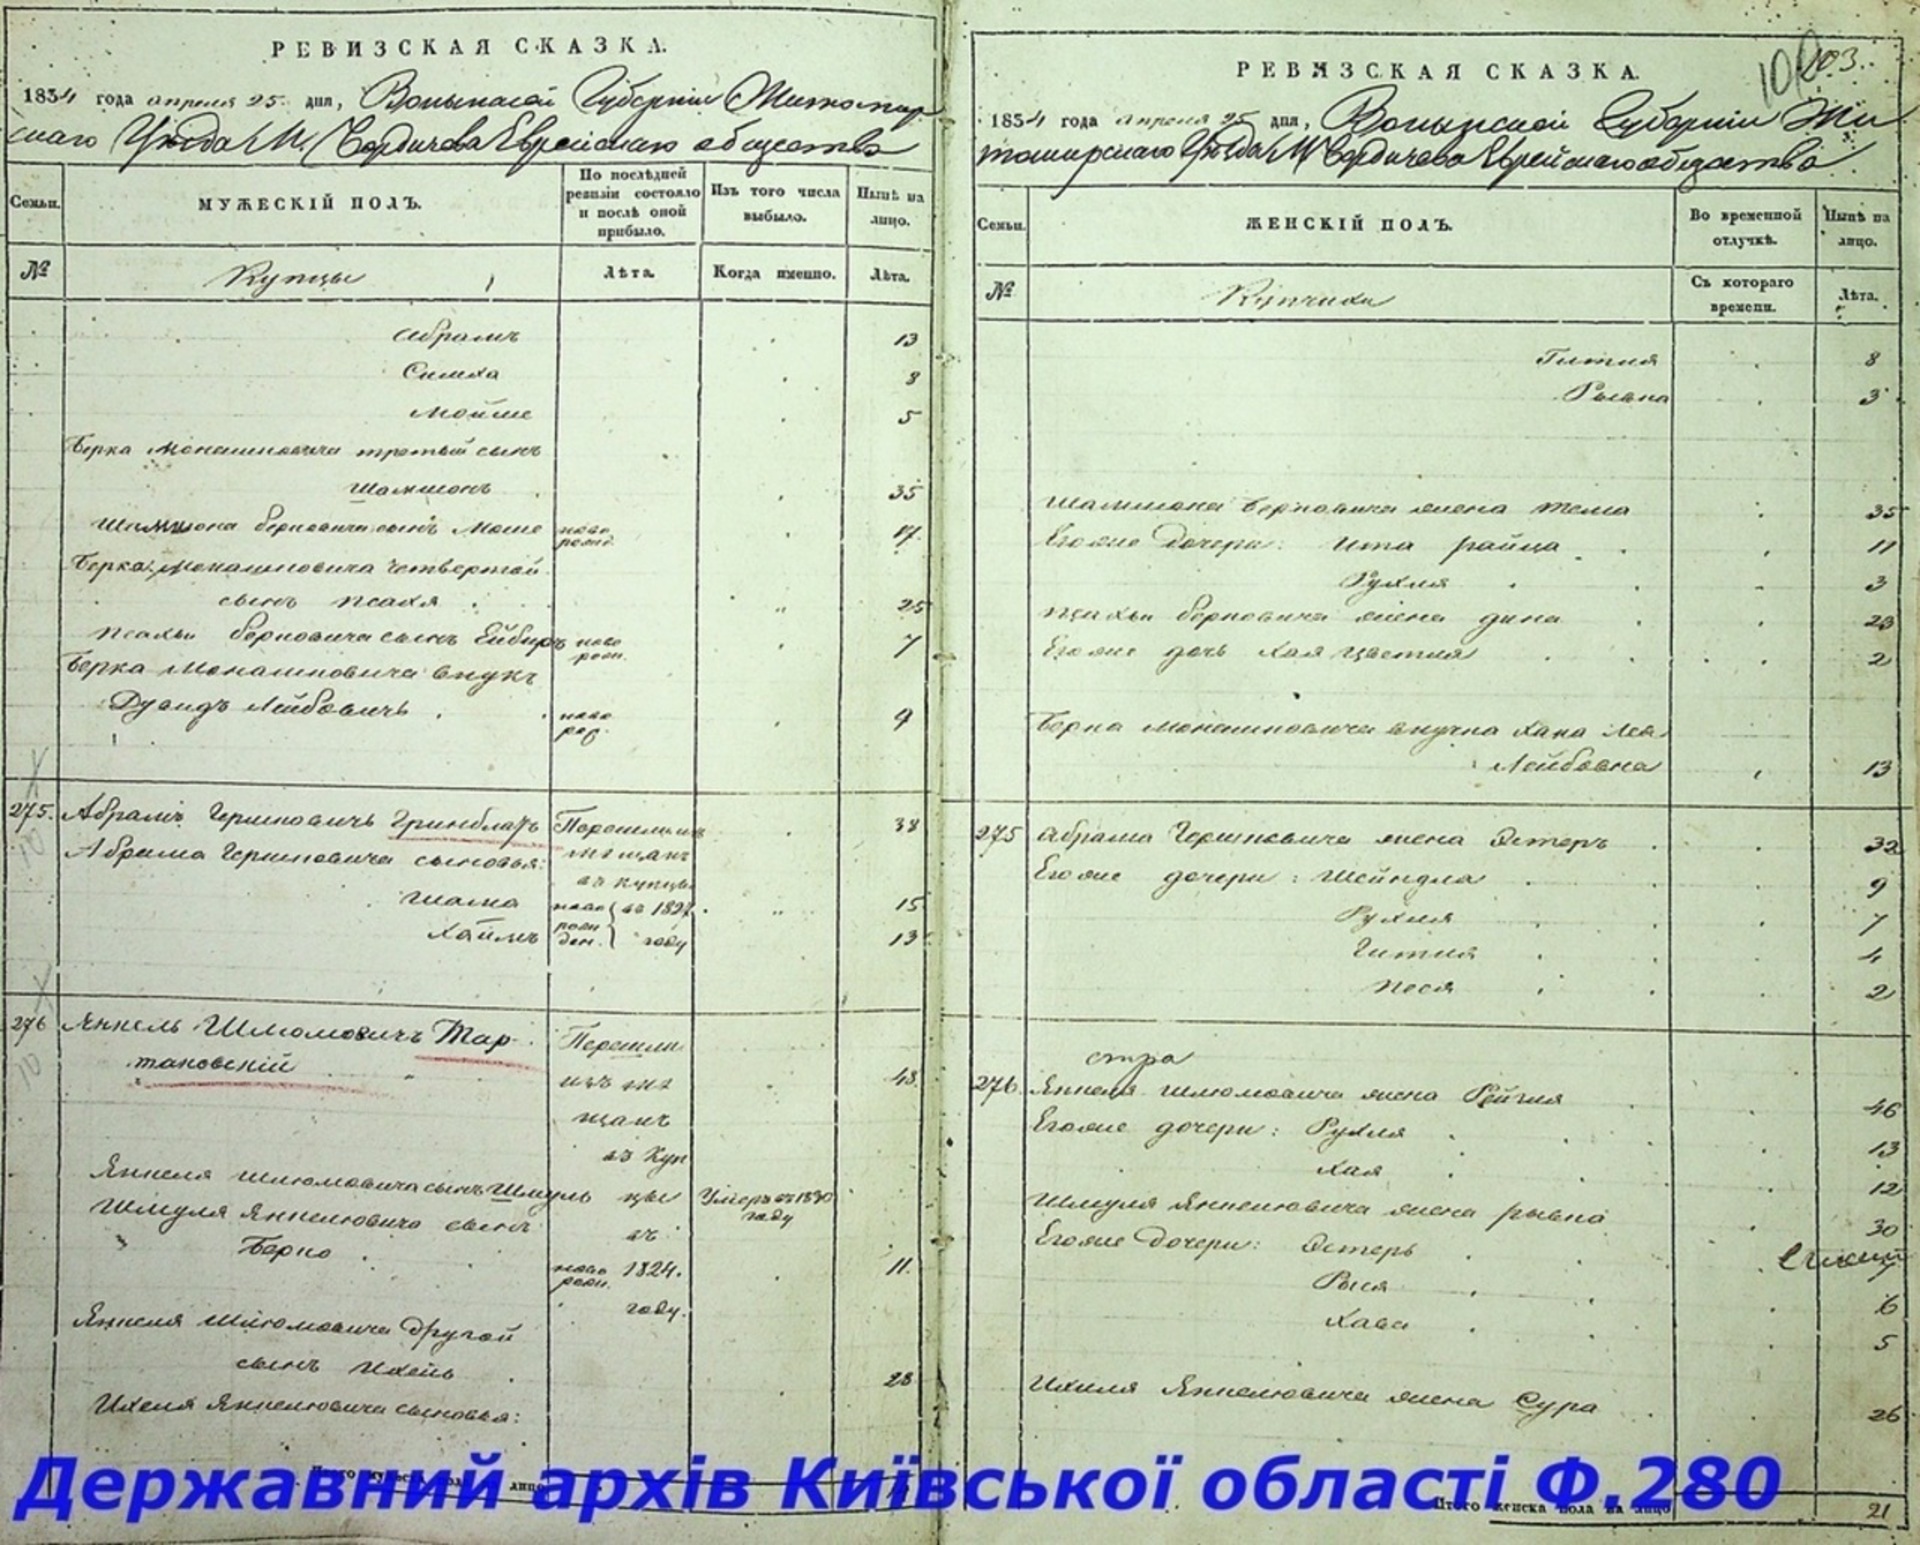 РЕВИЗСКАЯ СКАЗКА.
1834 года апреля 25 дня, Волынской Губернии Житомир
скаго Уезда М. Бердичева Еврейскаго общества
Семьи.
МУЖЕСКІЙ ПОЛЪ.
По послѣдней ревизіи состояло и послѣ оной прибыло.
Изъ того числа выбыло.
Нынѣ на лицо.
№
Купцы
Лѣта.
Когда именно.
Лѣта.
Абрамъ 13
Симха 8
Мойше 5
Берка Монашковича третьій сынъ
Шамшонъ 35
Шамшона Берковича сынъ Моше ново рожд. 17
Берка Монашковича четвертой
сынъ Псахя 25
Псахьи Берковича сынъ ново рожд. 7
Берка Монашковича внукъ
Дувидъ Лейбовичъ ново рож. 9
275. Абрамъ Гершковичъ Гринблатъ Перешли 38
Абрама Гершковича сыновья: мещанъ
въ купцы
Шама ново въ 1827 15
Хаймъ рожден. году 13
276 Янкель Шлюмовичъ Тар-
таковскій Перешли изъ мещанъ въ Купцы въ 1824. году. 48
Янкеля Шлюмовича сынъ Шмуль Умеръ въ 1830 году
Шмуля Янкелювича сынъ
Берко ново рожд. 11.
Янкеля Шлюмовича другой
сынъ Ихель 28
Ихеля Янкелювича сыновья:
РЕВИЗСКАЯ СКАЗКА.
203.
1834 года апреля 25 дня, Волынской Губернии Жи
томирскаго Уезда М Бердичева Еврейскаго общества
Семьи.
ЖЕНСКІЙ ПОЛЪ.
Во временной отлучкѣ.
Нынѣ на лицо.
№
Купчихи
Съ котораго времени.
Лѣта.
Гитля 8
Рывка 3
Шамшона Берковича жена Тема 35
Его же дочери: Ита Райца 11
Рухля 3
Псахьи Берковича жена Дина 23
Его же дочь Хая Цветля 2
Берка Монашковича внучка Хана Леа
Лейбовна 13
275 Абрама Гершковича жена Эстеръ 32
Его же дочери: Шейндла 9
Рухля 7
Гитля 4
Песя 2
276. Янкеля Шлюмовича жена Рейзля 46
Его же дочери: Рухля 13
Хая 12
Шмуля Янкелювича жена Рывка 30
Его же Дочери: Эстеръ
Рыся 6
Хава 5
Ихиля Янкелювича жена Сура 26
Итого женска пола на лицо 21
Державний архів Київської області Ф.280